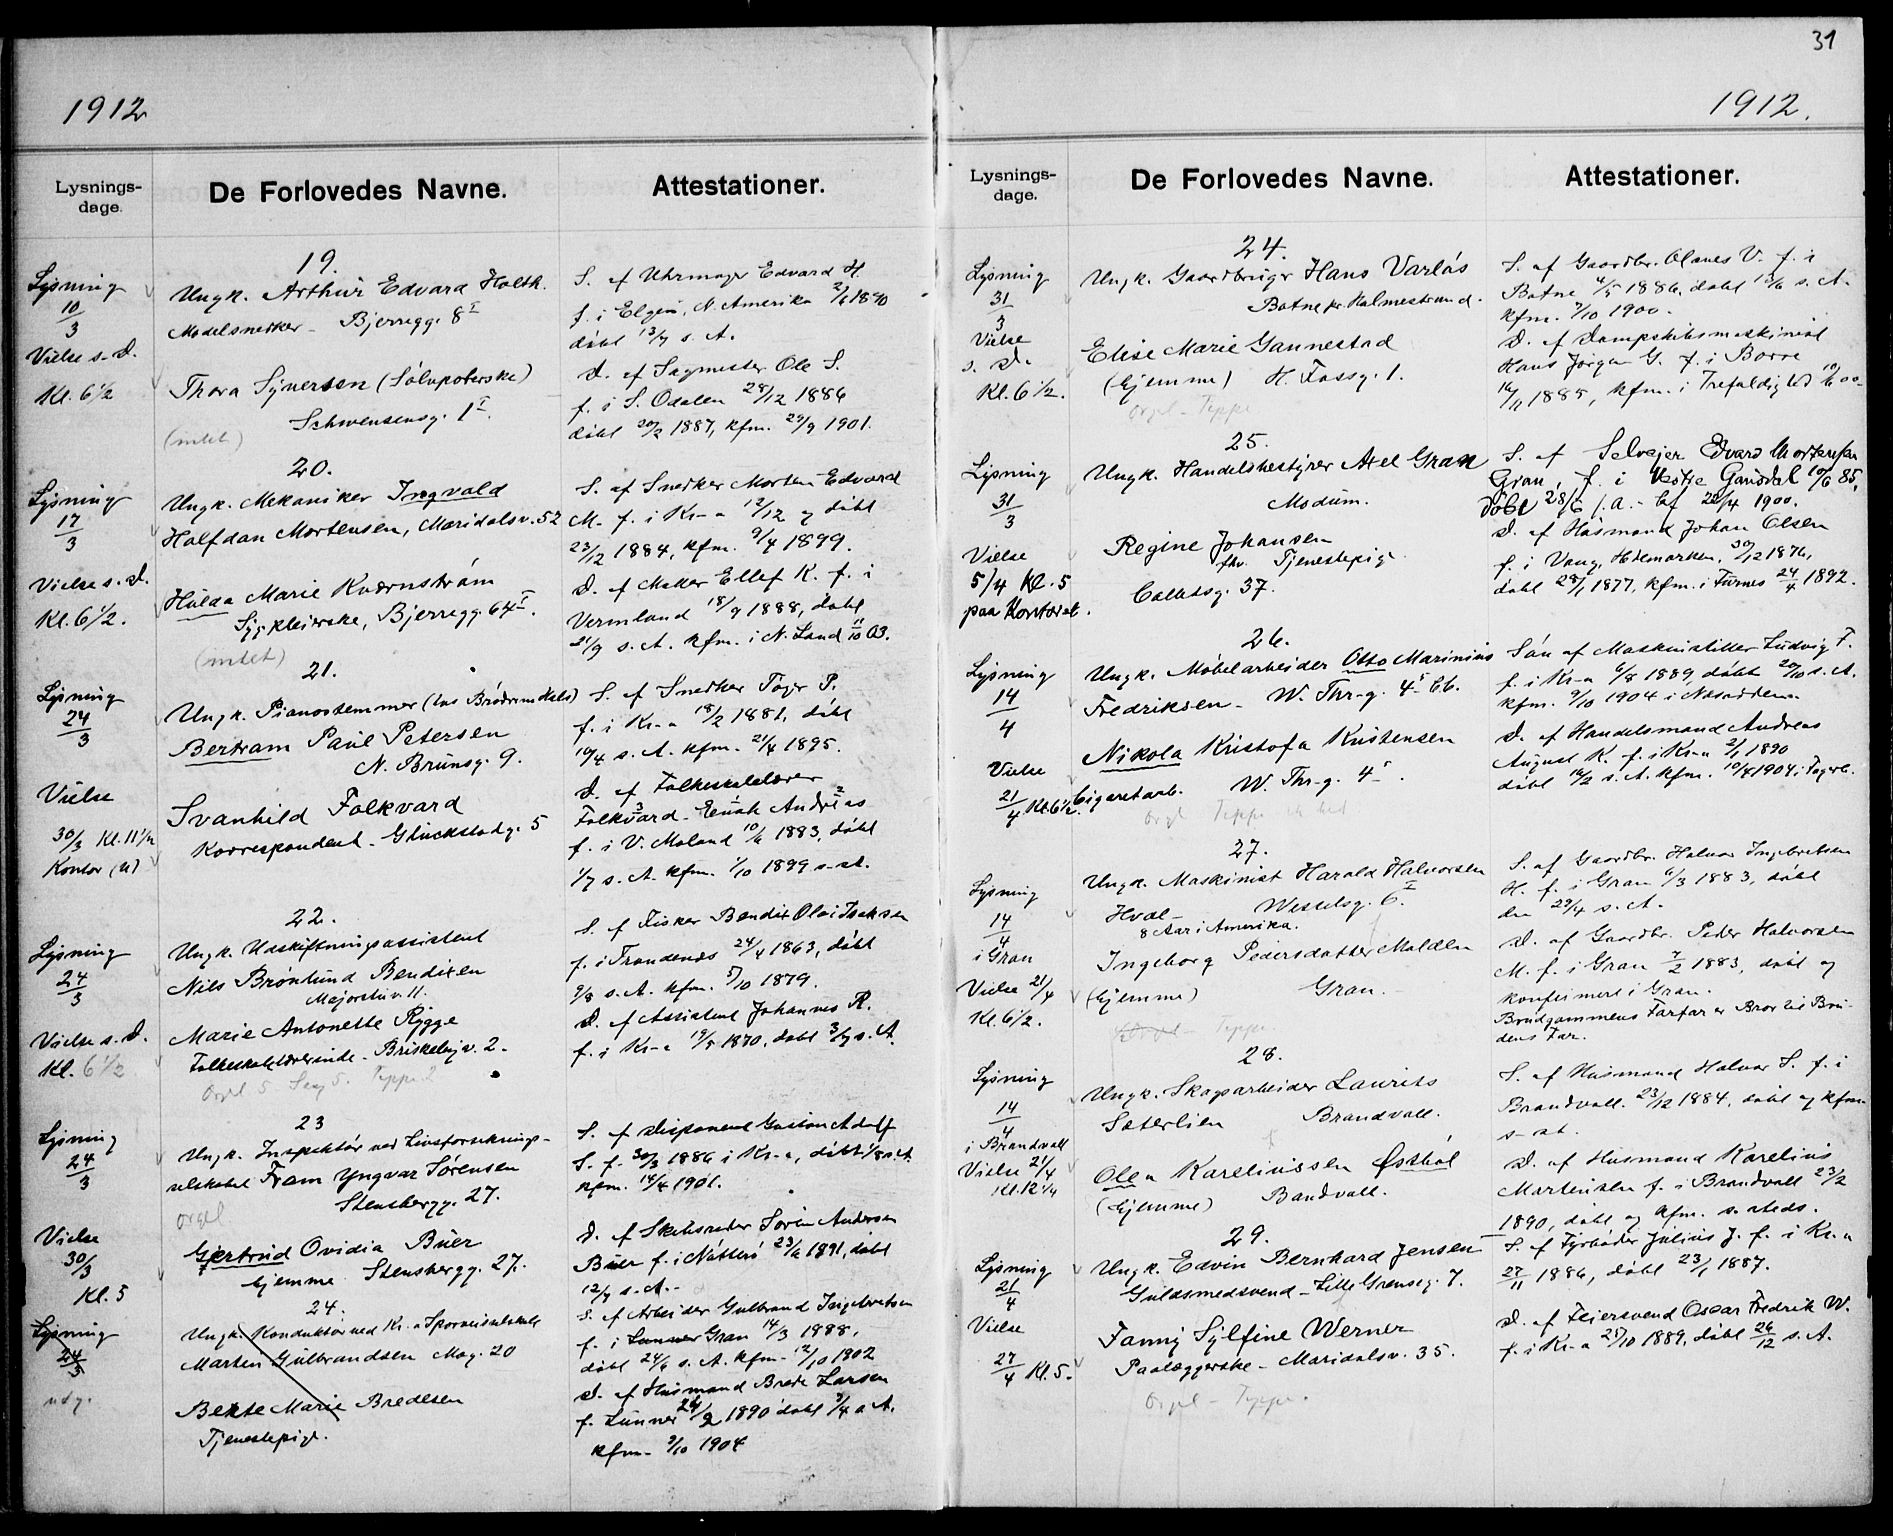 31
1912
Lysnings-
dage.
De Forlovedes Navne.
Attestationer.
19.
Lysning
10/3
Vielse s. D.
Kl. 6 1/2
Ungk. Arthur Edvard Holth.
Modelsnedker - Bjerregg. 8 I
Thora Synersen (Sølvpolerske)
Schwensensg. 1 I.
(intet)
S. af Uhrmager Edvard H.
f. i Elgin, N. Amerika 1890
døbt 13/7 s. A.
D. af Sagmester Ole S.
f. i S. Odalen 28/12 1886
døbt 20/2 1887, kfm. 29/9 1901.
20.
Lysning
17/3
Vielse s. D.
Kl. 6 1/2.
Ungk. Mekaniker Ingvald
Halfdan Mortensen, Maridalsv. 52
Hulda Marie Kværnstrøm
Sypleierske, Bjerregg. 64 I.
(intet)
S. af Snedker Morten Edvard
M. f. i Kr-a 12/12 og døbt
23/12 1884, kfm. 9/4 1899.
D. af Møller Ellef K. f. i
Vermland 18/9 1888, døbt
21/9 s. A. kfm. i N. Land 11/10 03.
21.
Lysning
24/3
Vielse
30/3 Kl. 11 1/2
Kontor (u)
Ungk. Pianostemmer (hos Brødrene Hals)
Bertram Paul Petersen
N. Brunsg. 9.
Svanhild Folkvard
Korrespondent - Glückstadg. 5
S. af Snedker Toger P.
f. i Kr-a 18/2 1881, døbt
10/4 s. A. kfm. 21/4 1895.
D. af Folkeskolelærer
Folkvard - Enok Andreas
f. i V. Moland 10/6 1883, døbt
1/7 s. A. kfm. 1/10 1899 s. st.
22.
Lysning
24/3
Vielse s. D.
Kl. 6 1/2
Ungk. Udskiftningsassistent
Nils Brønlund Bendixen
Majorstuv. 11.
Marie Antonette Rygge
Folkeskolelærerinde - Briskebyv. 2.
Orgel 5. Sang 5. Teppe 2
S. af Fisker Bendix Olai Isaksen
f. i Trondenes 24/4 1863, døbt
9/8 s. A. kfm. 5/10 1879.
D. af Assistent Johannes R.
f. i Kr-a 19/5 1870, døbt 3/7 s. A.
23
Lysning
24/3
Vielse
30/3
Kl. 5
Ungk. Inspektør ved Livsforsikrings-
selskabet Fram Yngvar Sørensen
Stensbergg. 27.
Orgel
Gjertrud Ovidia Buer
hjemme Stensbergg. 27.
S. af Disponent Gustav Adolf
S. f. 30/3 1886 i Kr-a, døbt 1/8 s. A.
kfm. 14/4 1901.
D. af Skibsreder Søren Andersen
Buer f. i Nøtterø 23/6 1891, døbt
12/9 s. A.
24.
Lysning
24/3
udg.
Ungk. Konduktør ved Kr.a Sporveisselskab
Marten Gulbrandsen Mag. 20
Berte Marie Bredesen
Tjenestepige.
S. af Arbeider Gulbrand Ingebretsen
f. i Lunner Gran 14/3 1888,
døbt 24/6 s. A. kfm. 12/10 1902
D. af Husmand Brede Larsen
f. Lunner 24/2 1890 døbt 7/4 s. A.
kfm. 9/10 1904
1912.
Lysnings-
dage.
De Forlovedes Navne.
Attestationer.
24.
Lysning
31/3
Vielse
s. D.
Kl. 6 1/2.
Ungk. Gaardbruger Hans Varløs
Botne pr. Holmestrand.
Elise Marie Gannestad
(hjemme) H. Fossg. 1.
Orgel - Teppe
S. af Gaardbr. Olaves V. f. i
Botne 4/5 1886, døbt s. A.
kfm. 7/10 1900.
D. af Dampskibsmaskinist
Hans Jørgen G. f. i Borre
1885, kfm. i Trefoldighed
25.
Lysning
31/3
Vielse
5/4 Kl. 5
paa Kontoret.
Ungk. Handelsbestyrer Axel Gran
Modum.
Regine Johansen
fhv. Tjenestepige
Calmeyersg. 37.
S. af Selveier Edvard Mortensen
Gran, f. i Vestre Gausdal 10/6 85,
døbt 28/6 s. A. - kf 22/4 1900.
D. af Husmand Johan Olsen
f. i Vang, Hedemarken, 30/12 1876,
døbt 28/1 1877, kfm. i Furnes 24/4 1892.
26.
Lysning
14/4
Vielse
21/4 Kl. 6 1/2
Ungk. Møbelarbeider Otto Marinius
Fredriksen - W. Thr-g. 4 I b.
Nikola Kristofa Kristensen
Cigaretarb. W. Thr-g. 4 I.
Orgel Teppe
Søn af Maskinsliber Ludvig F.
f. i Kr-a 6/8 1889, døbt 20/10 s. A.
kfm. 9/10 1904 i Nesodden
D. af Handelsmand Andreas
August K. f. i Kr-a 2/1 1890
døbt 16/2 s. A. kfm. 10/4 1904 i Fagerb.
27.
Lysning
14/4
i Gran
Vielse 21/4
Kl. 6 1/2.
Ungk. Maskinist Harald Halvorsen
Hval - Wesselsg. 6 I.
8 Aar i Amerika.
Ingeborg Pedersdatter Molden
(hjemme) Gran.
Orgel - Teppe.
S. af Gaardbr. Halvor Ingebretsen
H. f. i Gran 6/3 1883, døbt
den 29/4 s. A.
D. af Gaardbr. Peder Halvorsen
M. f. i Gran 7/2 1883, døbt og
konfirmert i Gran.
Brudgommens Farfar er Bror til Bru-
dens Far.
28.
Lysning
14/4
i Brandvall
Vielse 21/4
Kl. 12 1/4
Ungk. Skogsarbeider Laurits
Sæterlien Brandvall.
Olea Kareliussen Østbøl
(hjemme) Bandvall.
S. af Husmand Halvor S. f. i
Brandvall. 23/12 1884, døbt og kfm.
s. st.
D. af Husmand Karelius
Martinsen f. i Brandvall 23/2
1890, døbt og kfm. s. steds.
29.
Lysning
21/4
Vielse
27/4 Kl. 5.
Ungk. Edvin Bernhard Jensen
Guldsmedsvend - Lille Grensg. 7.
Fanny Sylfine Werner
Paalæggerske - Maridalsv. 35.
Orgel - Teppe.
S. af Fyrbøder Julius J. f. i Kr.a
27/11 1886, døbt 23/1 1887.
D. af Feiersvend Oscar Fredrik W.
f. i Kr-a 25/10 1889, døbt 26/12 s. A.